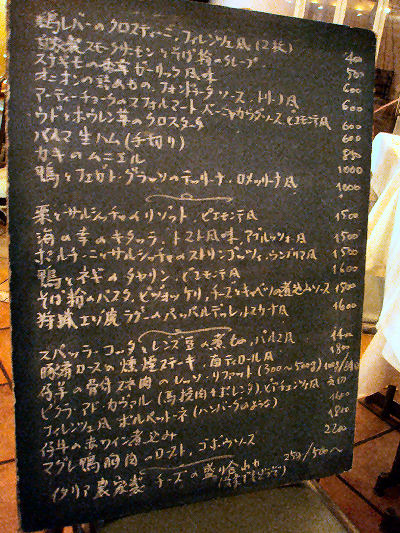 鶏レバーのクロスティーニ、フィレンツェ風 (2枚) 400
自家製スモークサーモンとそば粉のクレープ 500
スナギモの ガーリック風味 600
オニオンの詰めもの、フォンドゥータソース、トリノ風 600
アーティーチョークのスフォルマート、バーニャカウダソース、ピエモンテ風 600
ウドとホウレン草のクロスタータ 600
パルマ生ハム (手切り) 850
カキのムニエル 1000
鴨とフェガト・グラッソのテリーナ、ロメッリーナ風 1000
栗とサルシッチャのリゾット、ピエモンテ風 1500
海の幸のキタッラ、トマト風味、アブルッツォ風 1500
ポルチーニとサルシッチャのストリンゴッツィ、ウンブリア風 1500
鴨とネギのタヤリン、ピエモンテ風 1600
そば粉のパスタ、ピッツォッケリ、チーズとキャベツの煮込みソース 1500
狩猟エリ鹿ラグーのパッパルデッレ、トスカーナ風 1600
スパッラ・コッタとレンズ豆の煮物、パルマ風
豚肩ロースの燻煙ステーキ、南チロル風 1800
仔羊の骨付 肉のレッソ・リファット (300〜500g)
ピクラ・アド・カヴァル (馬挽肉そぼ、ポレンタ)、ピアチェンツァ風
フィレンツェ風 ポルペットーネ (ハンバーグのような) 1600
仔牛のホワイン煮込み 1800
マグレ鴨胸肉のロースト、ゴボウソース 2200
イタリア農家製 チーズの盛り合わせ 250/500〜